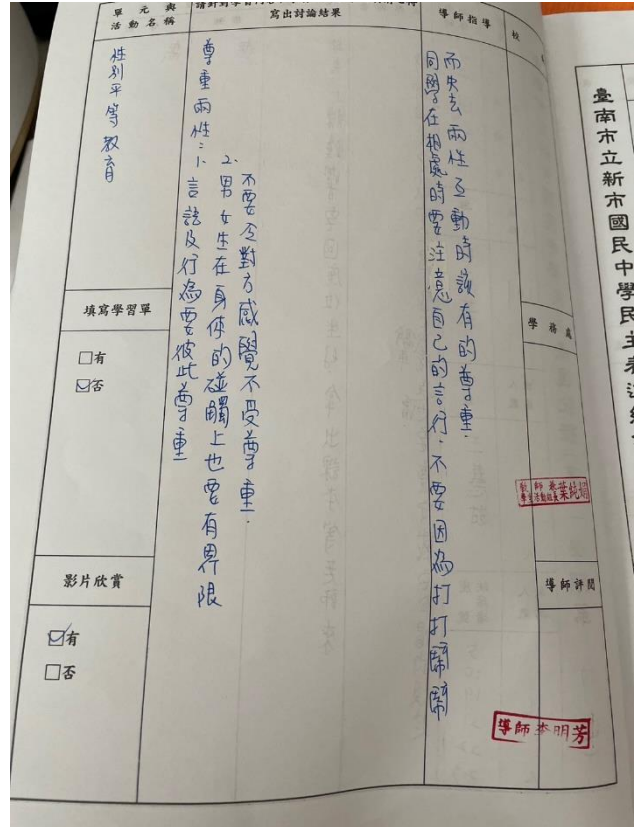 單元與
活動名稱
寫出討論結果
導師指導
校
性別平等教育
尊重兩性:1.言語及行為要彼此尊重
2.男女生在身体的碰觸上也要有界限
不要令對方感覺不受尊重.
同學在相處時要注意自己的言行.不要因為打打鬧鬧
而失去兩性互動時該有的尊重.
填寫學習單
□有
☑否
影片欣賞
☑有
□否
學務處
導師評閱
導師李明芳
臺南市立新市國民中學民主表